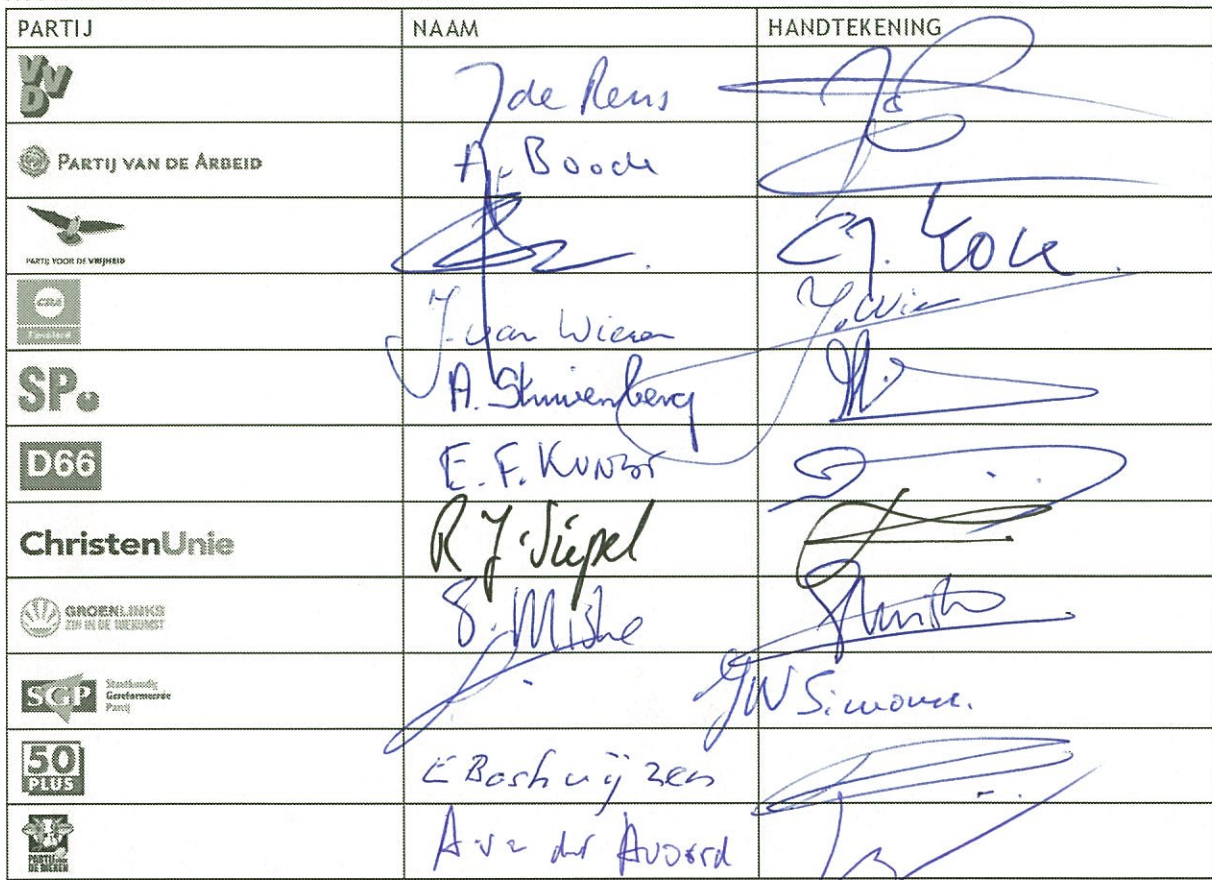 PARTIJ NAAM HANDTEKENING
VVD J de Reus
PARTIJ VAN DE ARBEID A. Boode
PARTIJ VOOR DE VRIJHEID C.J. Kock.
CDA J. van Wieren J. Wie
SP. A. Stuivenberg
D66 E. F. Kunst
ChristenUnie R J Siepel
GROENLINKS
ZIN IN DE TOEKOMST S. Miske
SGP Staatkundig
Gereformeerde
Partij JW Simonse.
50
PLUS E Boshuijzen
PARTIJ voor
DE DIEREN A. v/d Avoord